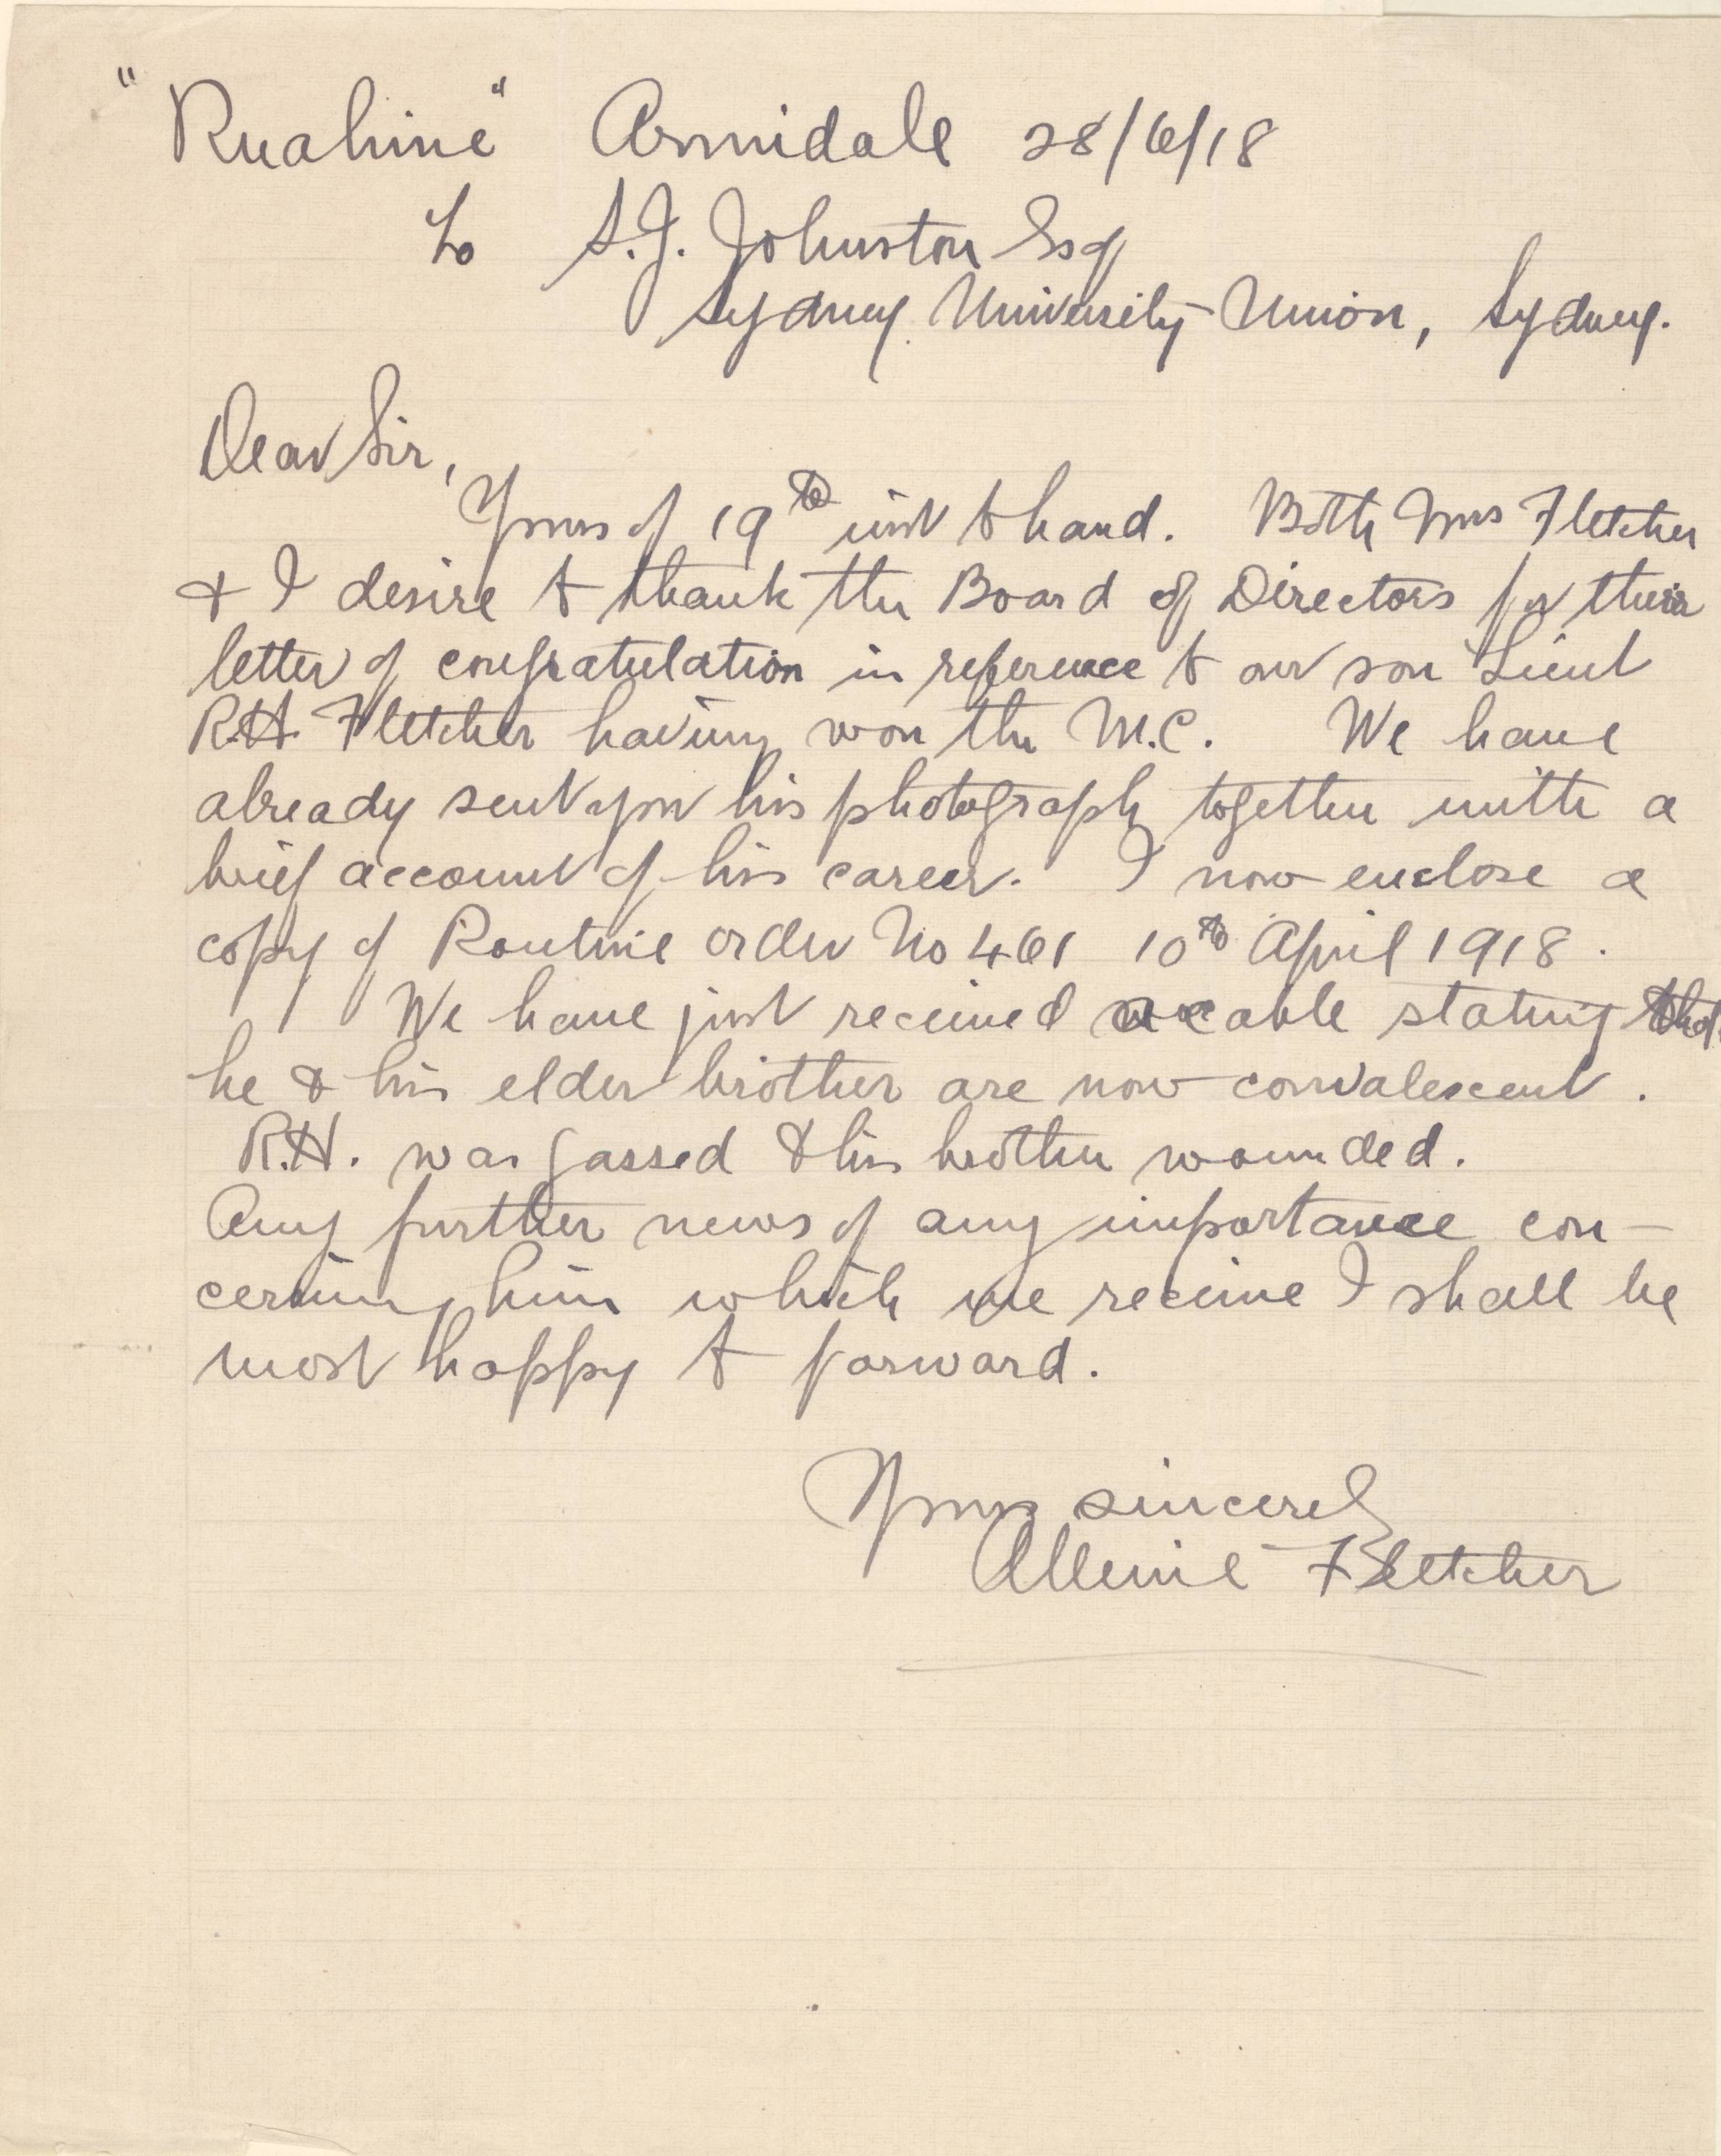 "Ruahine" Armidale 28/6/18
To S.J. Johnston Esq
Sydney University Union, Sydney.
Dear Sir,
Yours of 19th inst to hand. Both Mrs Fletcher
& I desire to thank the Board of Directors for their
letter of congratulation in reference to our son Lieut
R.H. Fletcher having won the M.C. We have
already sent you his photograph together with a
brief account of his career. I now enclose a
copy of Routine order No 461 10th April 1918.
We have just received a cable stating that
he & his elder brother are now convalescent.
R.H. was gassed & his brother wounded.
Any further news of any importance con-
cerning him which we receive I shall be
most happy to forward.
Yours sincerely
Fletcher